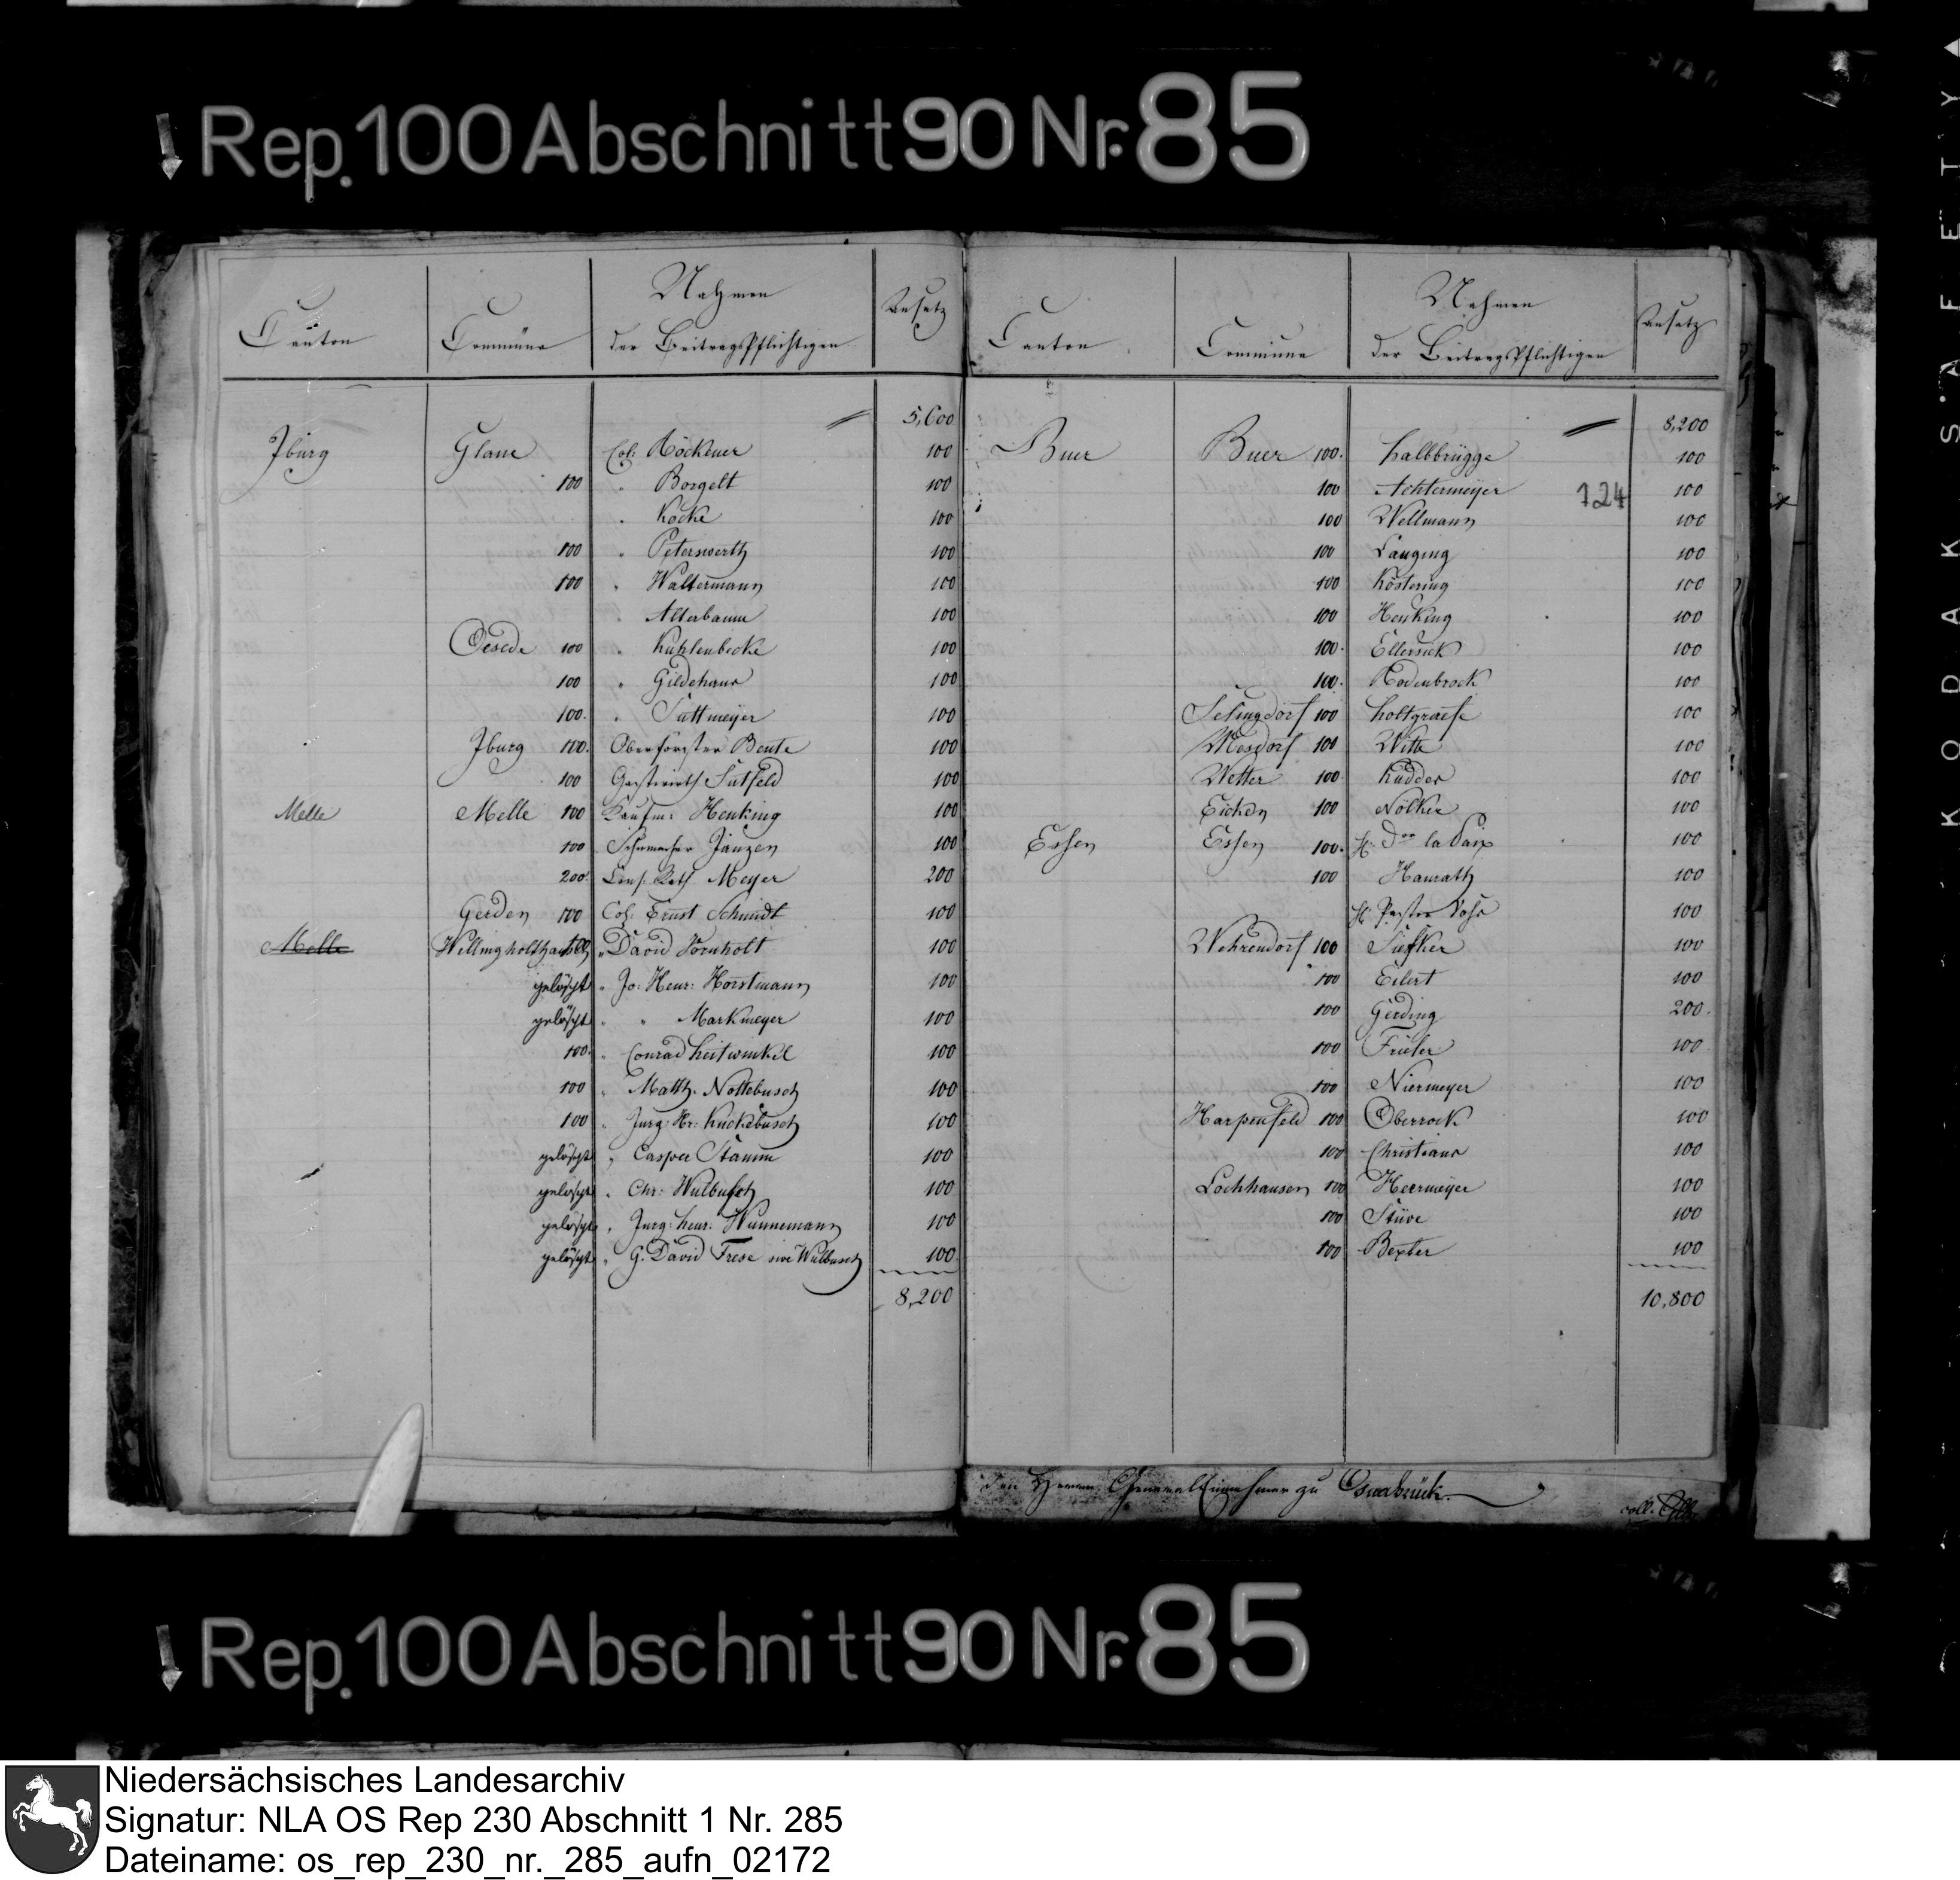 Rep. 100 Abschnitt 90 Nr. 85
Canton Commüne Nahmen der Beitragspflichtigen Ansatz
5,600
Jburg Glane Col: Röckener 100
100 " Borgelt 100
" Kocke 100
100 " Peterswerth 100
100 " Waltermann 100
Alterbaum 100
Oesede 100 " Kuhlenbecke 100
100 " Gildehaus 100
100. " Suttmeyer 100
Jburg 100. Oberförster Bente 100
100 Gastwirth Sutfeld 100
Melle Melle 100 Kaufm: Henking 100
100 Schumacher Janzen 100
200. Meyer 200
Gerden 100 Col: Ernst Schmidt 100
Melle Wellingholthausen " David Vornholt 100
gelöscht " Jo: Henr: Horstmann 100
gelöscht " " Markmeyer 100
100. " Conrad Heitwinkel 100
100 " Matth. Nottebusch 100
100 " Jurg: Hr: Kuckebusch 100
gelöscht " Casper Stamm 100
gelöscht " Chr: Wulbusch 100
gelöscht " Jurg: Henr: Wunnemann 100
gelöscht " G. David Frese sive Wulbusch 100
8,200
Canton Commüne Nahmen der Beitragspflichtigen Ansatz
8,200
Buer Buer 100. Halbbrügge 100
100 Achtermeyer 124 100
100 Wellmann 100
100 Langing 100
100 Köstering 100
100 Henking 100
100. Ellersiek 100
100. Rodenbrock 100
100 Holtgraefe 100
Wesdorf 100 Witte 100
Wetter 100 Kudder 100
Eicken 100 Nolker 100
Essen Essen 100. H: la Paix 100
100 Hanrath 100
H: Pastor Voss 100
Wehrendorf 100 Sufker 100
100 Eilert 100
100 Gerding 200.
100 100
100 Niermeyer 100
Harpenfeld 100 Oberrock 100
100 Christians 100
Lockhausen 100 Heermeyer 100
100 Stüve 100
100 Bexter 100
10,800
den Herrn General Einnehmer zu Osnabrück.
coll.
Rep. 100 Abschnitt 90 Nr. 85
KODAK SAFETY
Niedersächsisches Landesarchiv
Signatur: NLA OS Rep 230 Abschnitt 1 Nr. 285
Dateiname: os_rep_230_nr._285_aufn_02172